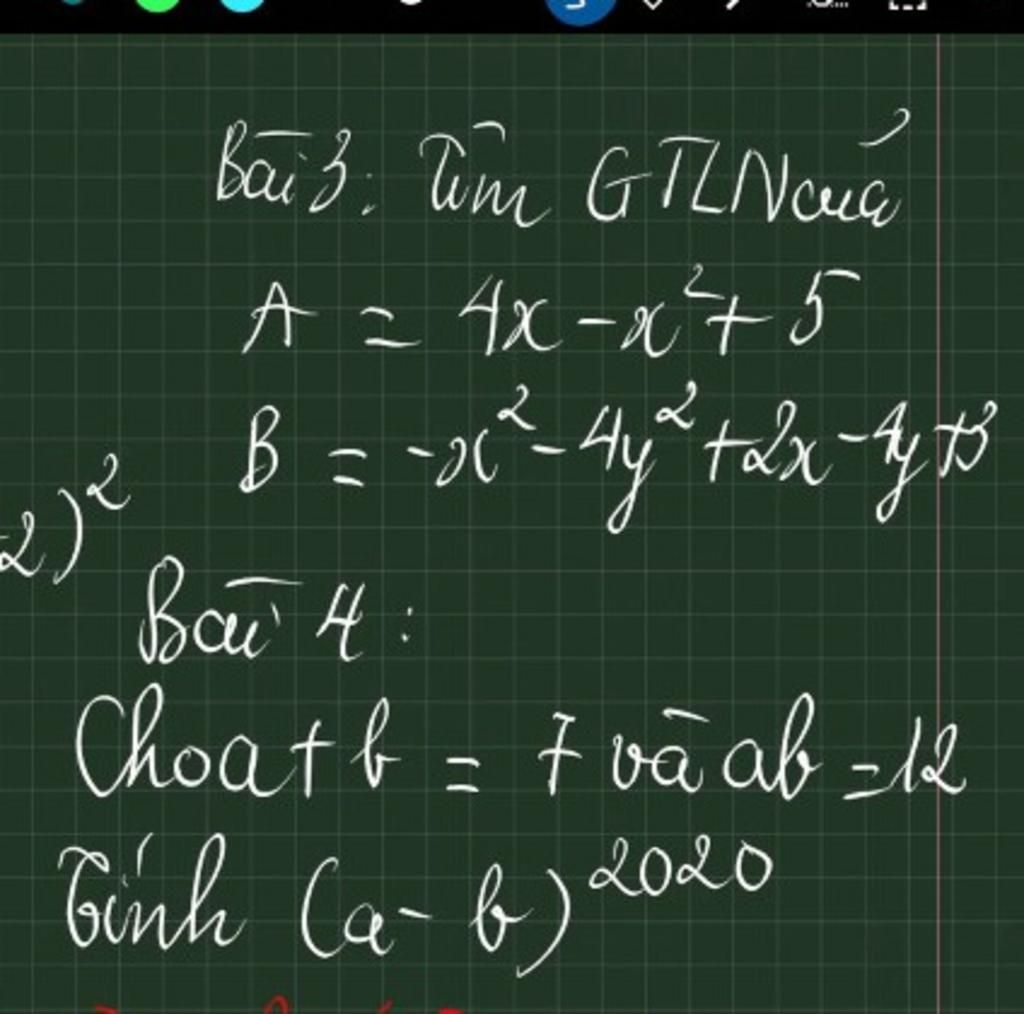 Bài 3: Tìm GTLN của
A = 4x - x² + 5
B = -x² - 4y² + 2x - 4y + 3
2)²
Bài 4:
Cho a + b = 7 và ab = 12
Tính (a - b)²⁰²⁰